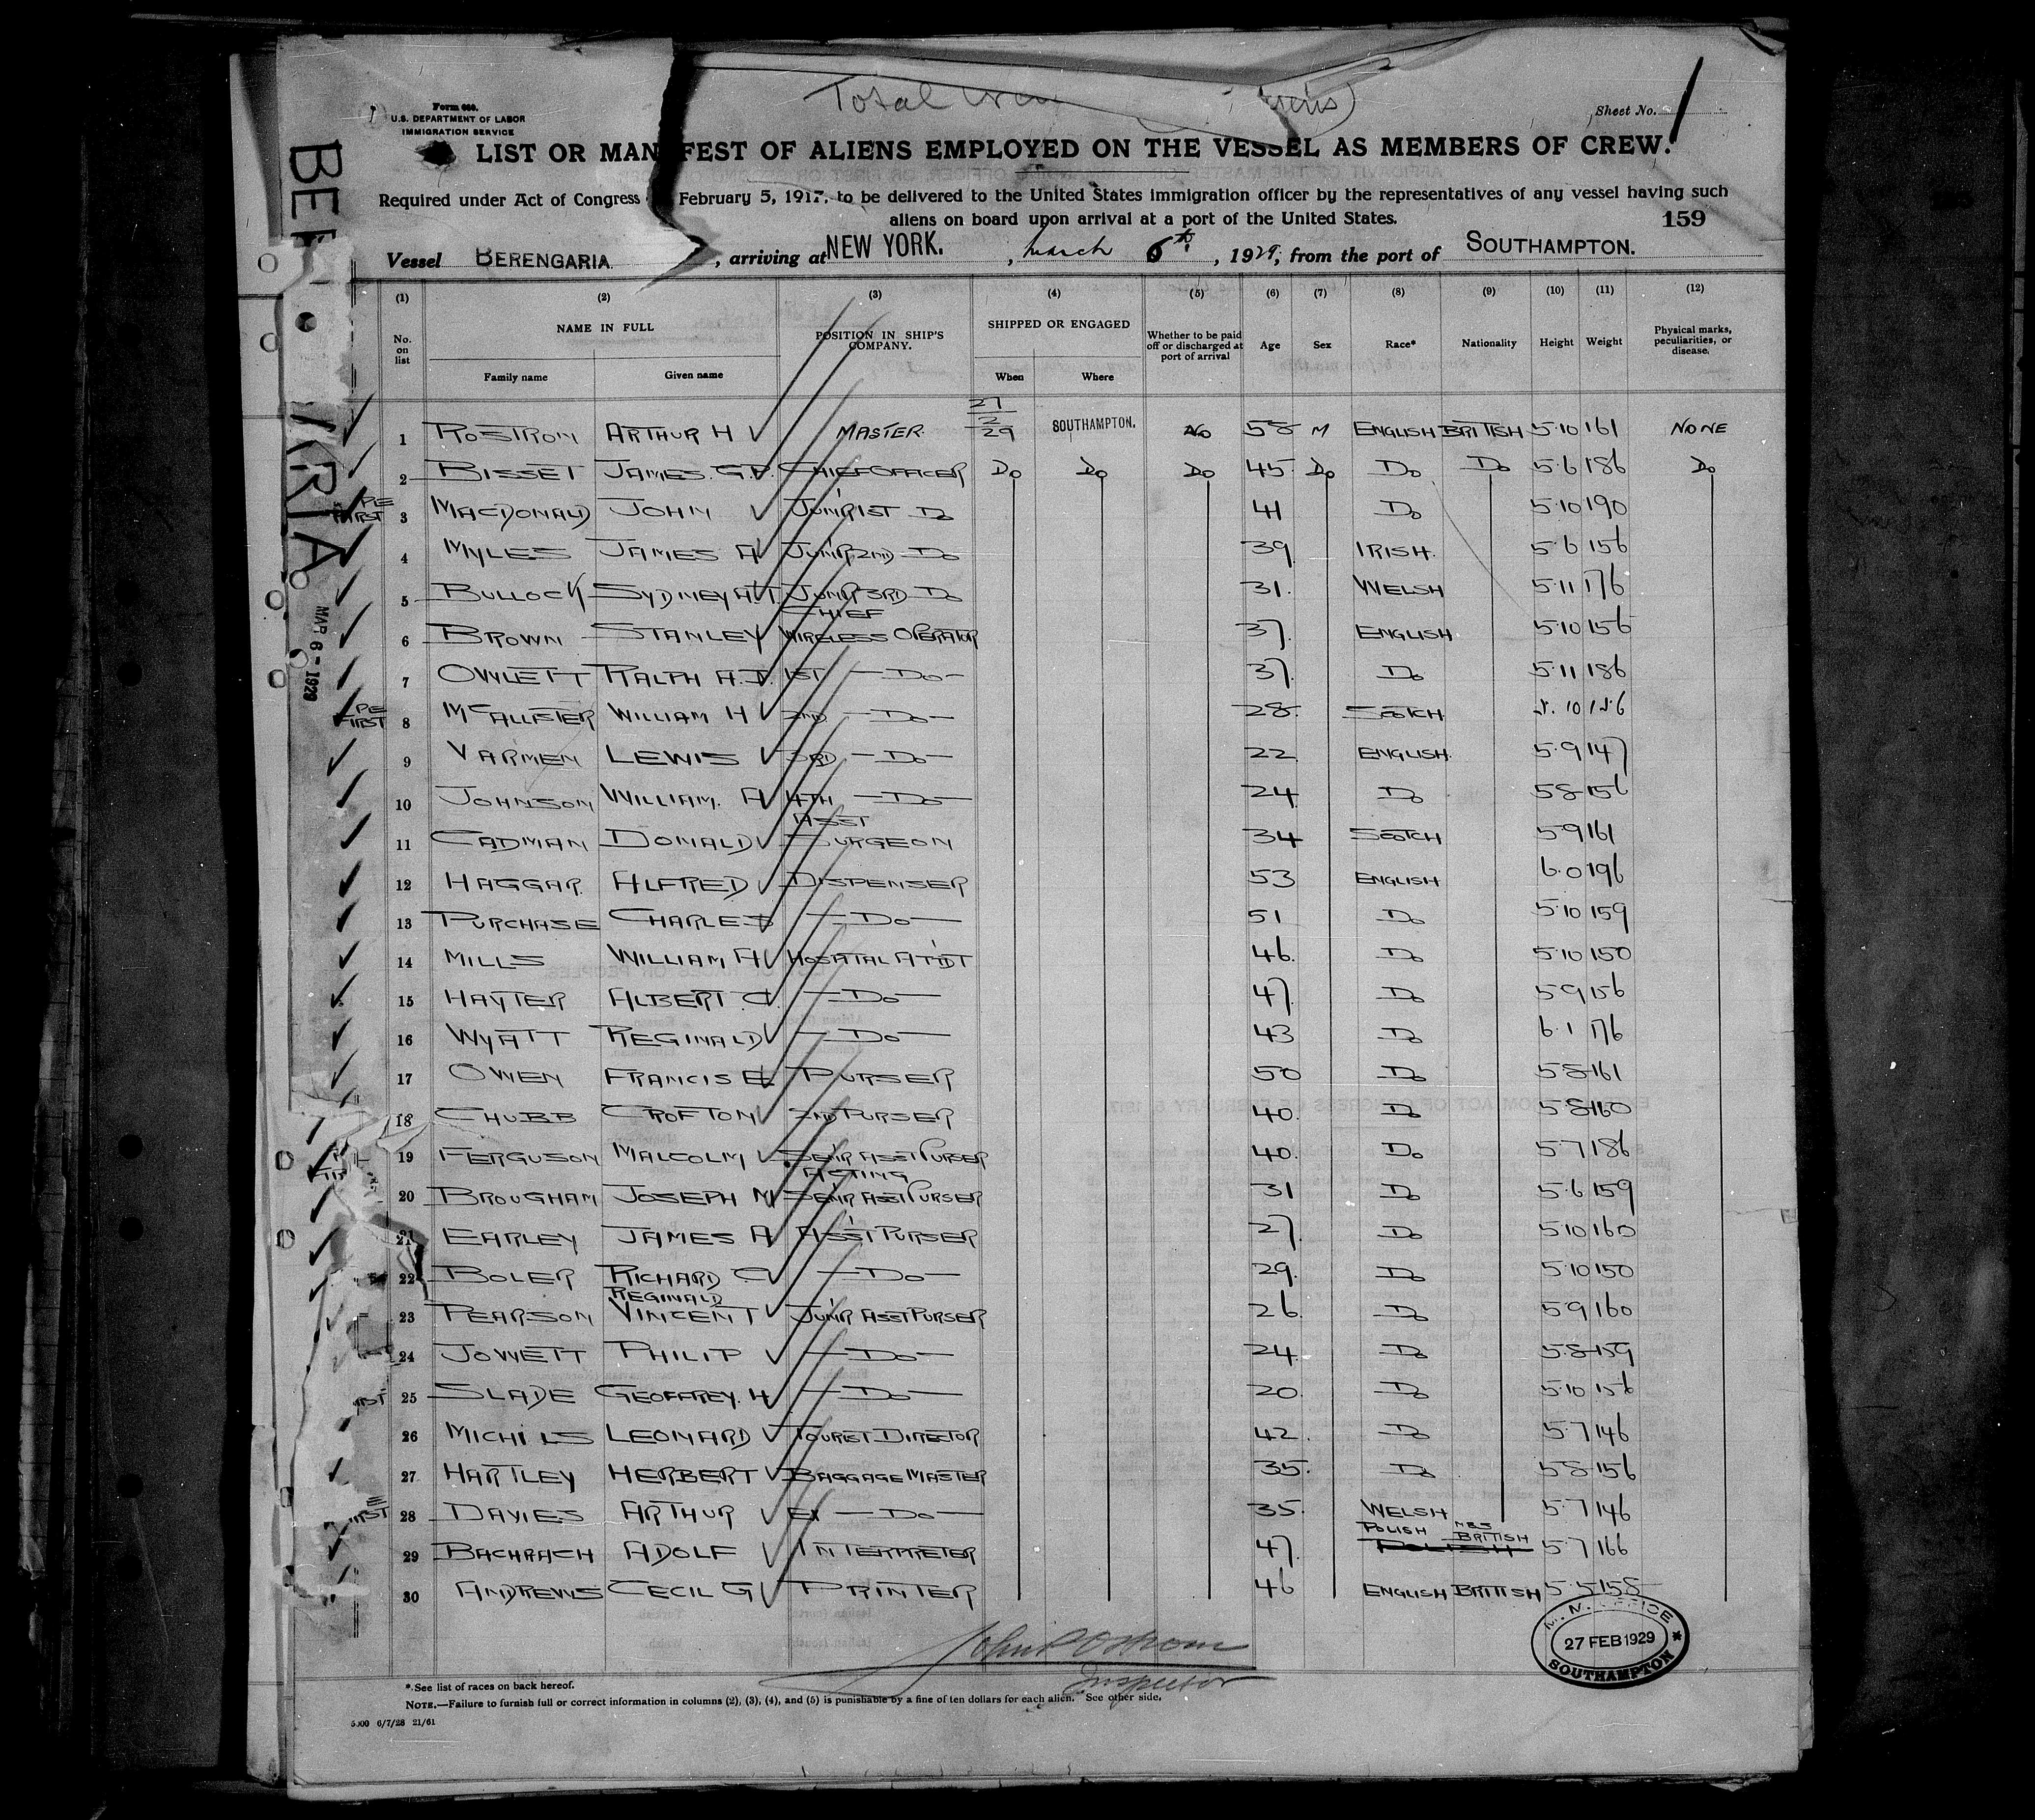 Total Crew
Form 680.
U.S. DEPARTMENT OF LABOR
IMMIGRATION SERVICE
Sheet No. 1
LIST OR MANIFEST OF ALIENS EMPLOYED ON THE VESSEL AS MEMBERS OF CREW.
Required under Act of Congress February 5, 1917, to be delivered to the United States immigration officer by the representatives of any vessel having such
aliens on board upon arrival at a port of the United States.
159
Vessel BERENGARIA, arriving at NEW YORK., March 6th, 1929, from the port of SOUTHAMPTON.
(1) (2) (3) (4) (5) (6) (7) (8) (9) (10) (11) (12)
No. on list NAME IN FULL Family name Given name POSITION IN SHIP'S COMPANY. SHIPPED OR ENGAGED When Where Whether to be paid off or discharged at port of arrival Age Sex Race* Nationality Height Weight Physical marks, peculiarities, or disease.
1 ROSTRON ARTHUR H MASTER. 27/2/29 SOUTHAMPTON. NO 58 M ENGLISH BRITISH 5.10 161 NONE
2 BISSET JAMES. G.P. CHIEF OFFICER DO DO DO 45 DO DO DO 5.6 186 DO
PE FIRST 3 MACDONALD JOHN JUN'R 1ST DO 41 DO 5.10 190
4 MYLES JAMES A JUN'R 2ND DO 39 IRISH. 5.6 156
5 BULLOCK SYDNEY A.T. JUN'R 3RD DO 31. WELSH 5.11 176
6 BROWN STANLEY CHIEF WIRELESS OPERATOR 37. ENGLISH. 5.10 156
7 OWLETT RALPH A.J. 1ST —DO— 37. DO 5.11 186
PE FIRST 8 McALLISTER WILLIAM H 2ND —DO— 28. SCOTCH 5.10 156
9 VARMEN LEWIS 3RD —DO— 22. ENGLISH. 5.9 147
10 JOHNSON WILLIAM. A 4TH —DO— 24 DO 5.8 156
11 CADMAN DONALD ASST SURGEON 34 SCOTCH 5.9 161
12 HAGGAR. ALFRED DISPENSER 53 ENGLISH 6.0 196
13 PURCHASE CHARLES —DO— 51 DO 5.10 159
14 MILLS WILLIAM A HOSPITAL ATT'DT 46. DO 5.10 150
15 HAYTER ALBERT C. —DO— 47. DO 5.9 156
16 WYATT REGINALD —DO— 43 DO 6.1 176
17 OWEN FRANCIS E PURSER 50 DO 5.8 161
18 CHUBB CROFTON 2ND PURSER 40. DO 5.8 160
19 FERGUSON MALCOLM SEN'R ASST PURSER 40. DO 5.7 186
20 BROUGHAM JOSEPH M ACTING SEN'R ASST PURSER 31 DO 5.6 159
21 EARLEY JAMES A ASS'T PURSER 27. DO 5.10 160
22 BOLER RICHARD C —DO— 29. DO 5.10 150
23 PEARSON REGINALD VINCENT JUN'R ASST PURSER 26. DO 5.9 160
24 JOWETT PHILIP —DO— 24. DO 5.8 159
25 SLADE GEOFFREY. H —DO— 20. DO 5.10 156
26 LEONARD TOURIST DIRECTOR 42. DO 5.7 146
27 HARTLEY HERBERT BAGGAGE MASTER 35. DO 5.8 156
28 DAVIES ARTHUR EX —DO— 35. WELSH 5.7 146
29 BACHRACH ADOLF INTERPRETER 47. POLISH BRITISH POLISH 5.7 166
30 ANDREWS CECIL G PRINTER 46 ENGLISH BRITISH 5.5 158
John P Ostrom
Inspector
M. M. OFFICE
27 FEB 1929
SOUTHAMPTON
*See list of races on back hereof.
NOTE.—Failure to furnish full or correct information in columns (2), (3), (4), and (5) is punishable by a fine of ten dollars for each alien. See other side.
5000 6/7/28 21/61
MAR 6 - 1929